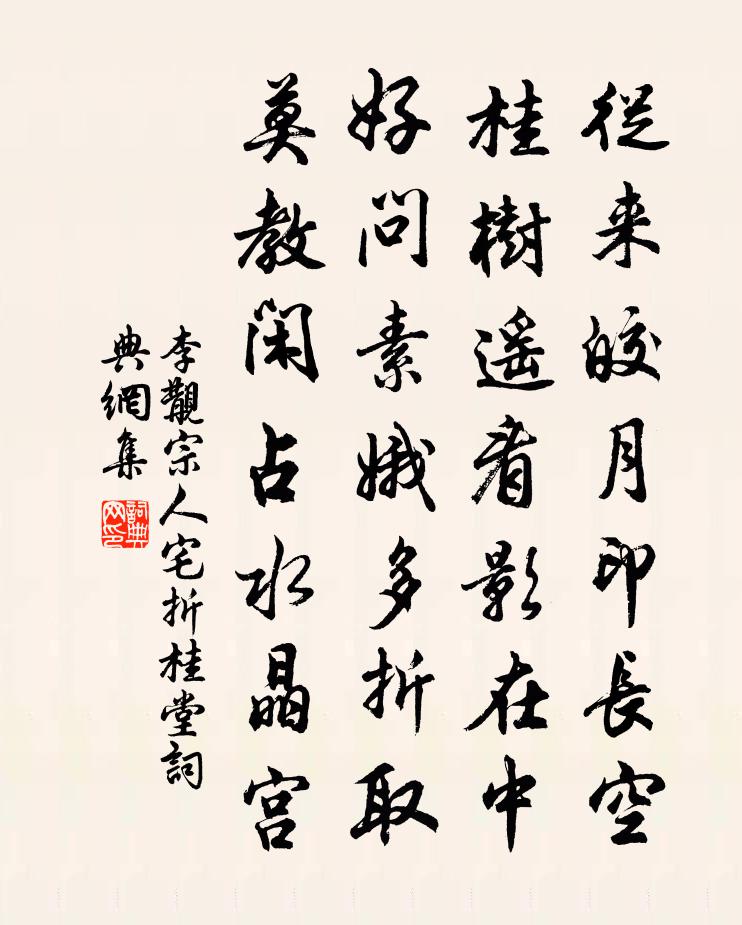 從来皎月印長空
桂樹遥看影在中
好問素娥多折取
莫教閑占水晶宫
李覯宗人宅折桂堂詞
典網集
詞典
网印